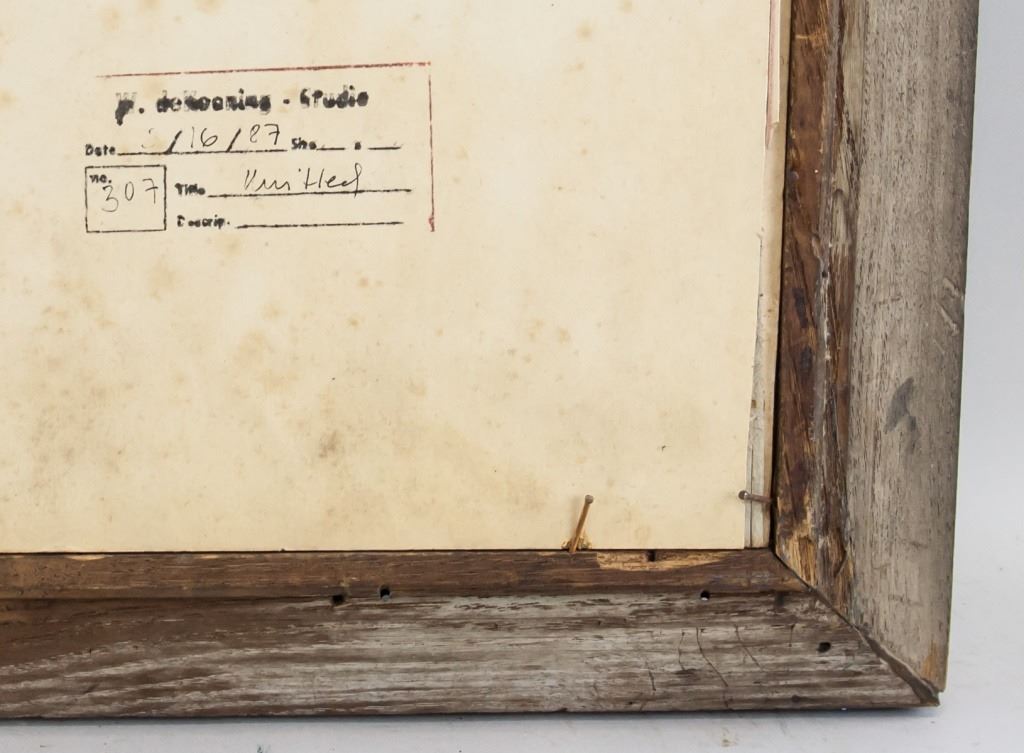 W. deKooning - Studio
Date /16/87 Size
No. 307 Title Untitled
Descrip.